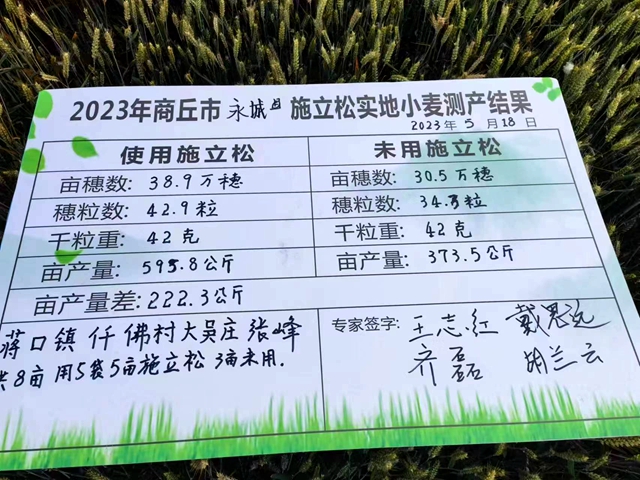 2023年商丘市永城县施立松实地小麦测产结果
2023年5月18日
使用施立松 未用施立松
亩穗数: 38.9万穗 亩穗数: 30.5万穗
穗粒数: 42.9粒 穗粒数: 34.3粒
千粒重: 42克 千粒重: 42克
亩产量: 595.8公斤 亩产量: 373.5公斤
亩产量差: 222.3公斤
蒋口镇仟佛村大吴庄张峰
共8亩用5袋5亩施立松3亩未用.
专家签字: 王志红 戴思远
齐磊 胡兰云